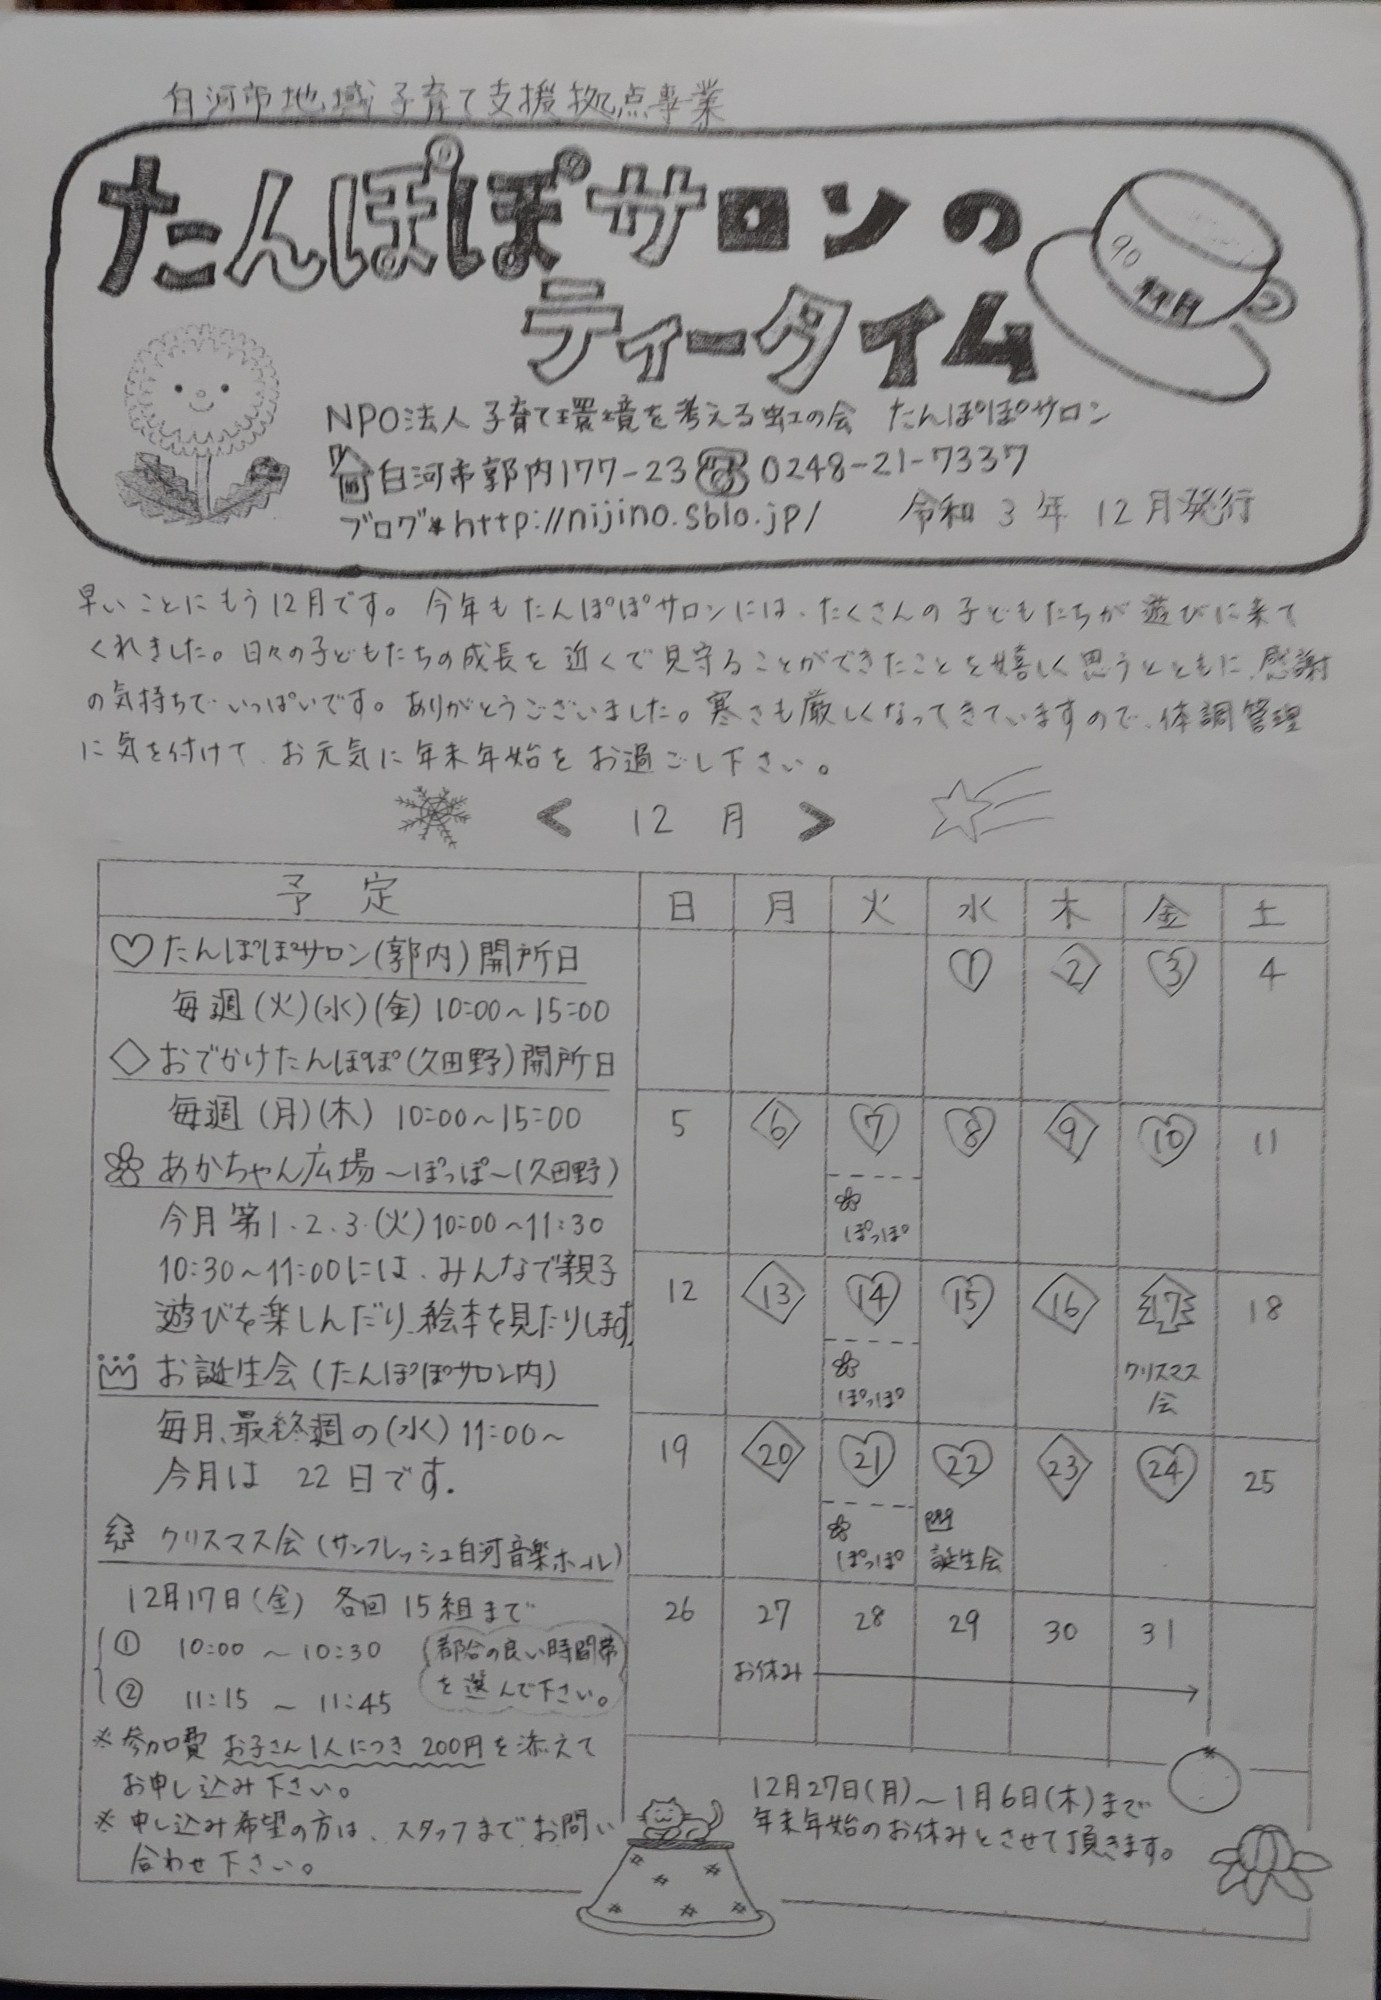 白河市地域子育て支援拠点事業
たんぽぽサロンの
ティータイム
90
11月
NPO法人子育て環境を考える虹の会 たんぽぽサロン
白河市郭内177-23 0248-21-7337
ブログ*http://nijino.sblo.jp/ 令和3年12月発行
早いことにもう12月です。今年もたんぽぽサロンには、たくさんの子どもたちが遊びに来て
くれました。日々の子どもたちの成長を近くで見守ることができたことを嬉しく思うとともに、感謝
の気持ちでいっぱいです。ありがとうございました。寒さも厳しくなってきていますので、体調管理
に気を付けて、お元気に年末年始をお過ごし下さい。
< 12月 >
予定
♡たんぽぽサロン(郭内)開所日
毎週(火)(水)(金)10:00~15:00
◇おでかけたんぽぽ(久田野)開所日
毎週(月)(木) 10:00~15:00
あかちゃん広場~ぽっぽ~(久田野)
今月第1.2.3.(火)10:00~11:30
10:30~11:00には、みんなで親子
遊びを楽しんだり、絵本を見たりします
お誕生会(たんぽぽサロン内)
毎月、最終週の(水)11:00~
今月は 22日です.
クリスマス会(サンフレッシュ白河音楽ホール)
12月17日(金) 各回15組まで
① 10:00 ~ 10:30
② 11:15 ~ 11:45
都合の良い時間帯
を選んで下さい。
※参加費 お子さん1人につき200円を添えて
お申し込み下さい。
※申し込み希望の方は、スタッフまでお問い
合わせ下さい。
日 月 火 水 木 金 土
1 2 3 4
5 6 7 8 9 10 11
ぽっぽ
12 13 14 15 16 17 18
ぽっぽ クリスマス
会
19 20 21 22 23 24 25
ぽっぽ 誕生会
26 27 28 29 30 31
お休み
12月27日(月)~1月6日(木)まで
年末年始のお休みとさせて頂きます。